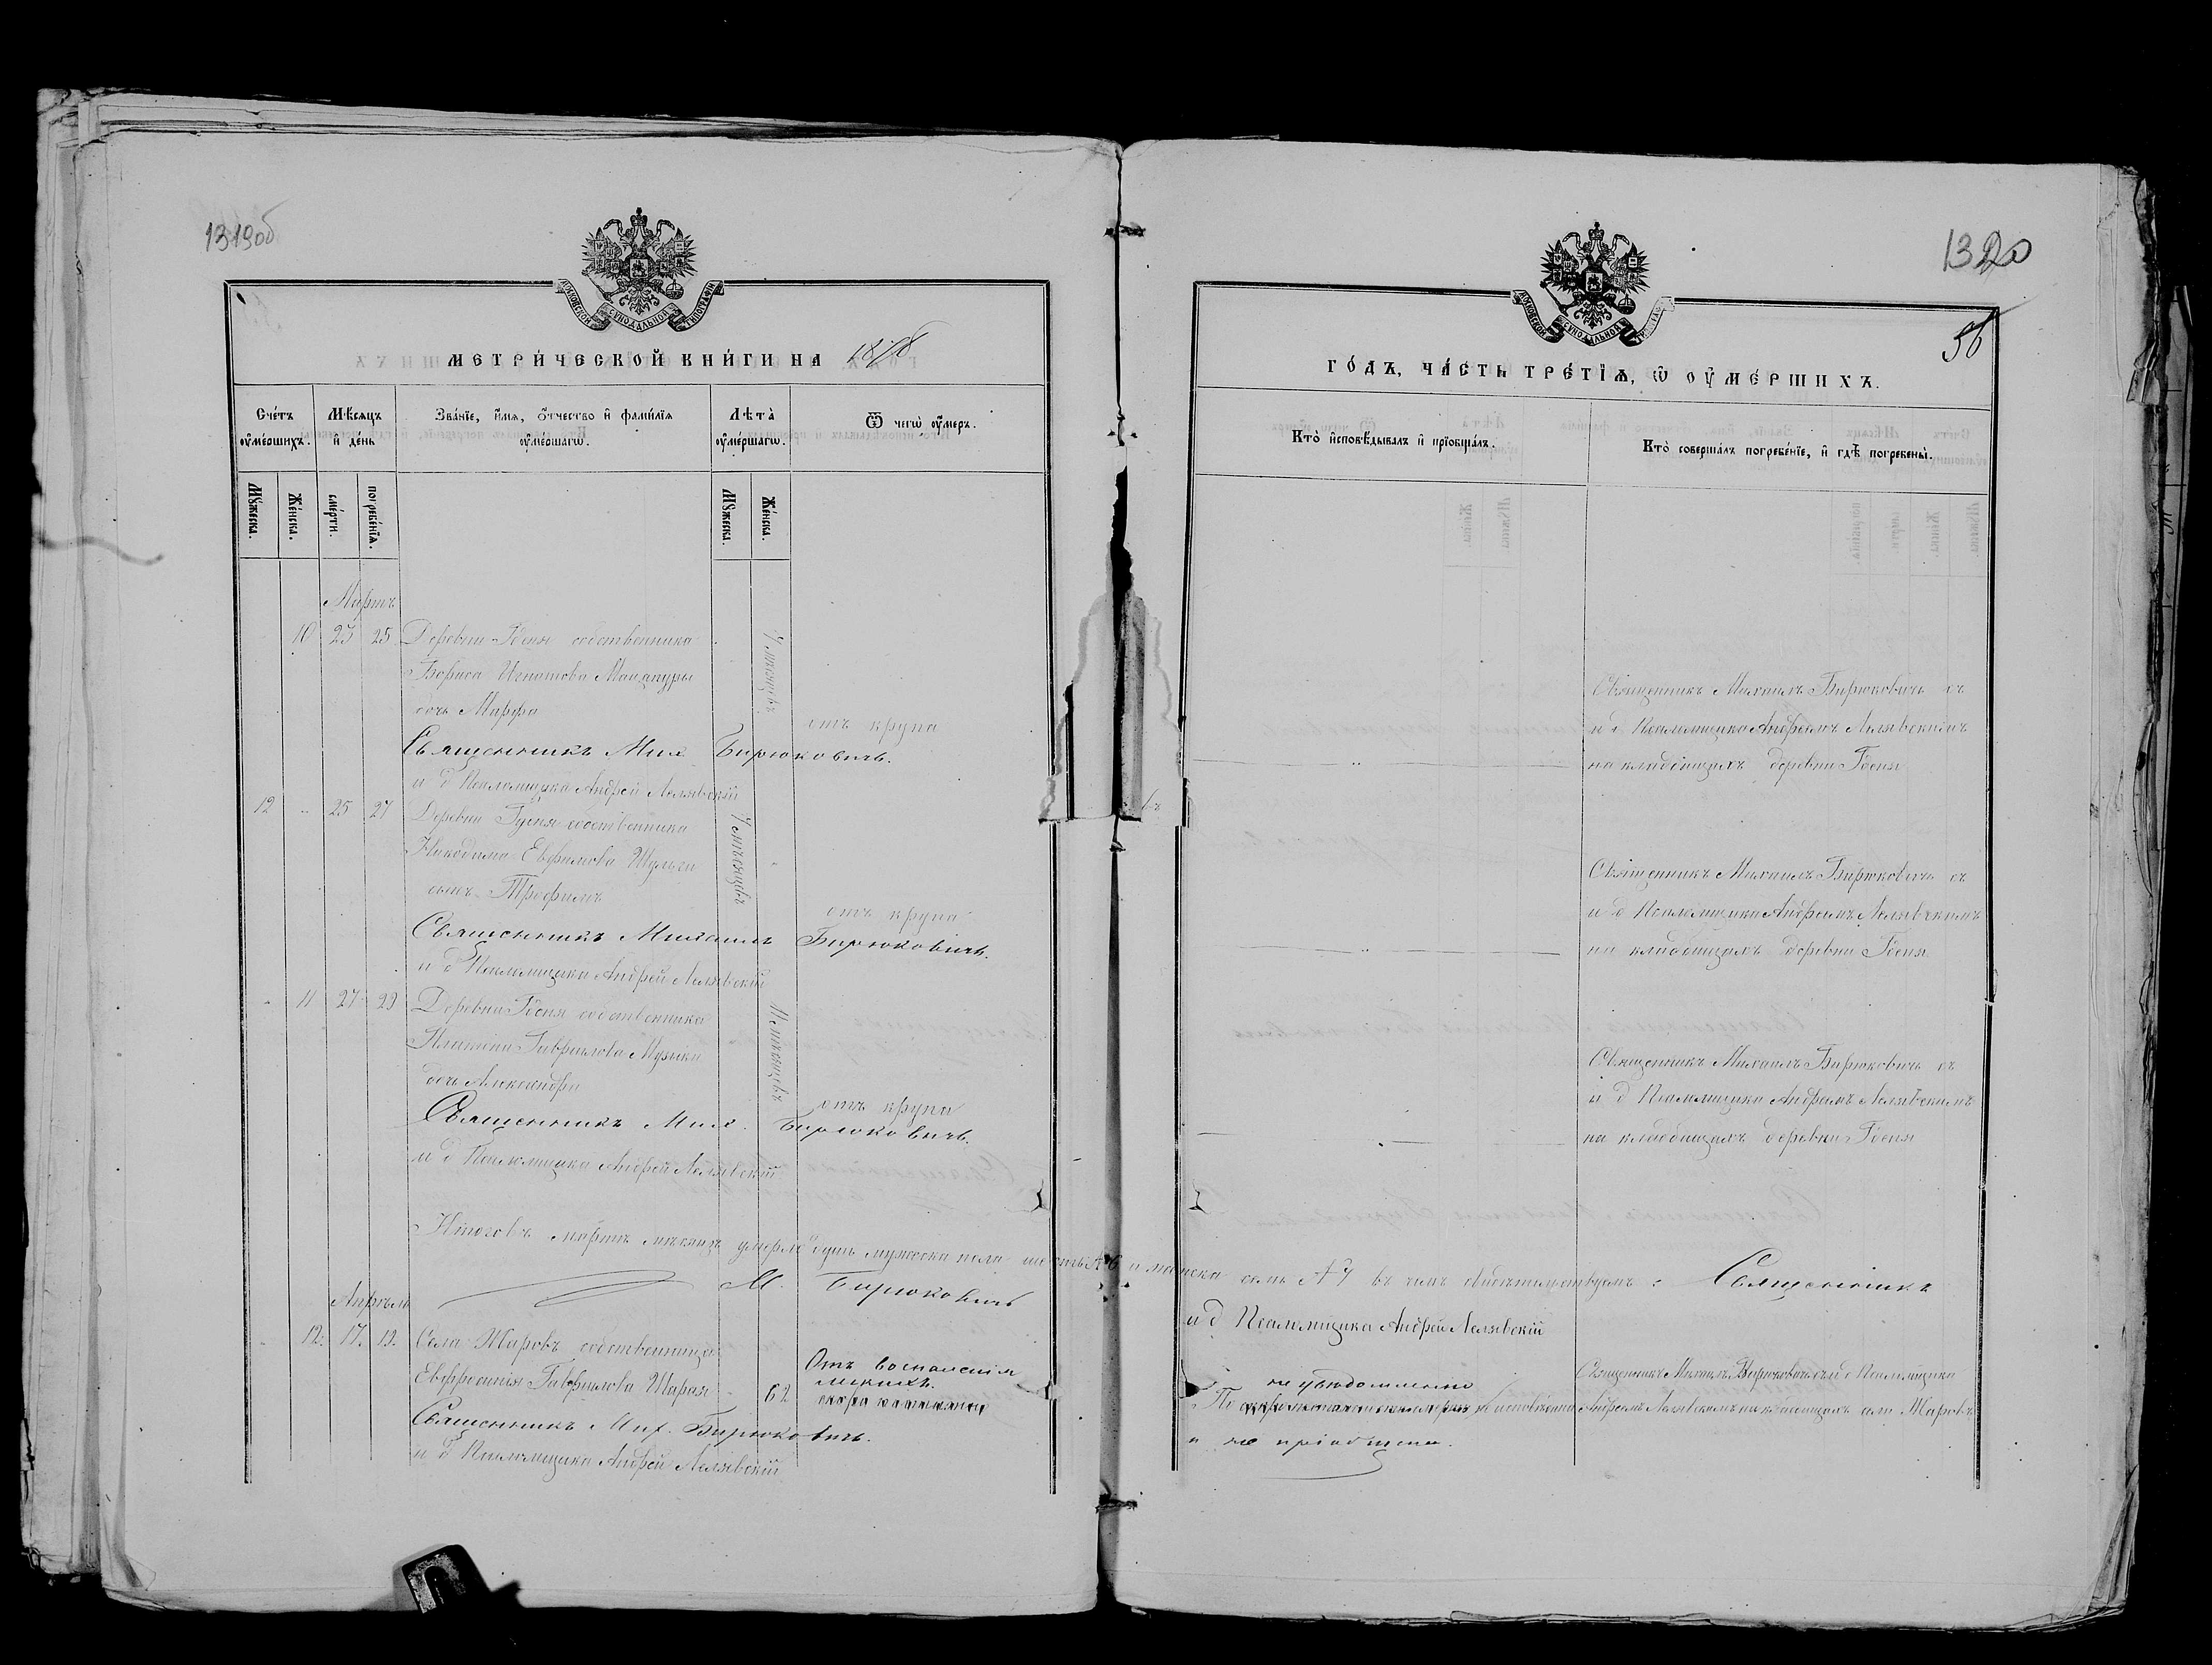 1319об
МОСКОВСКОЙ СУНОДАЛЬНОЙ ТИПОГРАФІИ
МЕТРИ́ЧЕСКОЙ КНИ́ГИ НА 1878
Сче́тъ ѹме́ршихъ.
Мѣ́сяцъ и де́нь
Зва́нїе, и́мя, ѻ́тчество и фами́лїя ѹме́ршагѡ.
Лѣта̀ ѹме́ршагѡ.
Ѿ чегѡ̀ ѹ́меръ.
Мꙋ́жеска.
Же́нска.
сме́рти.
погребе́нїя.
Мꙋ́жеска.
Же́нска.
Мартъ
10 23 25 Деревни Гденя собственника
Бориса Игнатова Мацапуры
дочь Марфа
отъ крупа
Священникъ Мих. Бирюковичъ.
и д Псаломщика Андрей Лелявскій
12 25 27 Деревни собственника
Никодима Евфимова Шульги
сынъ Трофимъ
отъ крупа
Священникъ Михаилъ Бирюковичъ.
и д Псаломщика Андрей Лелявскій
11 27 29 Деревни Гденя собственника
Гаврилова
дочь Александра
отъ крупа
Священникъ Мих. Бирюковичъ.
и д Псаломщика Андрей Лелявскій
Итого въ мартѣ мѣсяцѣ умерло мужеска пола шесть № 6 и женска семь № 7 въ чемъ свидѣтельствуемъ: Священникъ
М. Бирюковичъ
и д Псаломщика Андрей Лелявскій
Апрѣль
12. 17. 19. Села Жаровъ собственница
Евфросинія Гаврилова Шарая 62
Отъ воспаленія
легкихъ.
Священникъ Мих. Бирюковичъ.
и д Псаломщика Андрей Лелявскій
1320
56
МОСКОВСКОЙ СУНОДАЛЬНОЙ
ГО́ДЪ, ЧА́СТЬ ТРЕ́ТІѦ, Ѡ ОУМЕ́РШИХЪ.
Кто̀ исповѣ́дывалъ и прїобща́лъ.
Кто̀ соверша́лъ погребе́нїе, и гдѣ̀ погребены̀.
Священникъ Михаилъ Бирюковичъ съ
и д Псаломщика Андреемъ Лелявскимъ
на кладбищахъ деревни Гденя
Священникъ Михаилъ Бирюковичъ съ
и д Псаломщика Андреемъ Лелявскимъ
на кладбищахъ деревни Гденя
Священникъ Михаилъ Бирюковичъ съ
и д Псаломщика Андреемъ Лелявскимъ
на кладбищахъ деревни Гденя
По не исповѣдана
и не пріобщена.
Священникъ Михаилъ Бирюковичъ съ и д Псаломщика
Андреемъ Лелявскимъ на кладбищахъ села Жаровъ